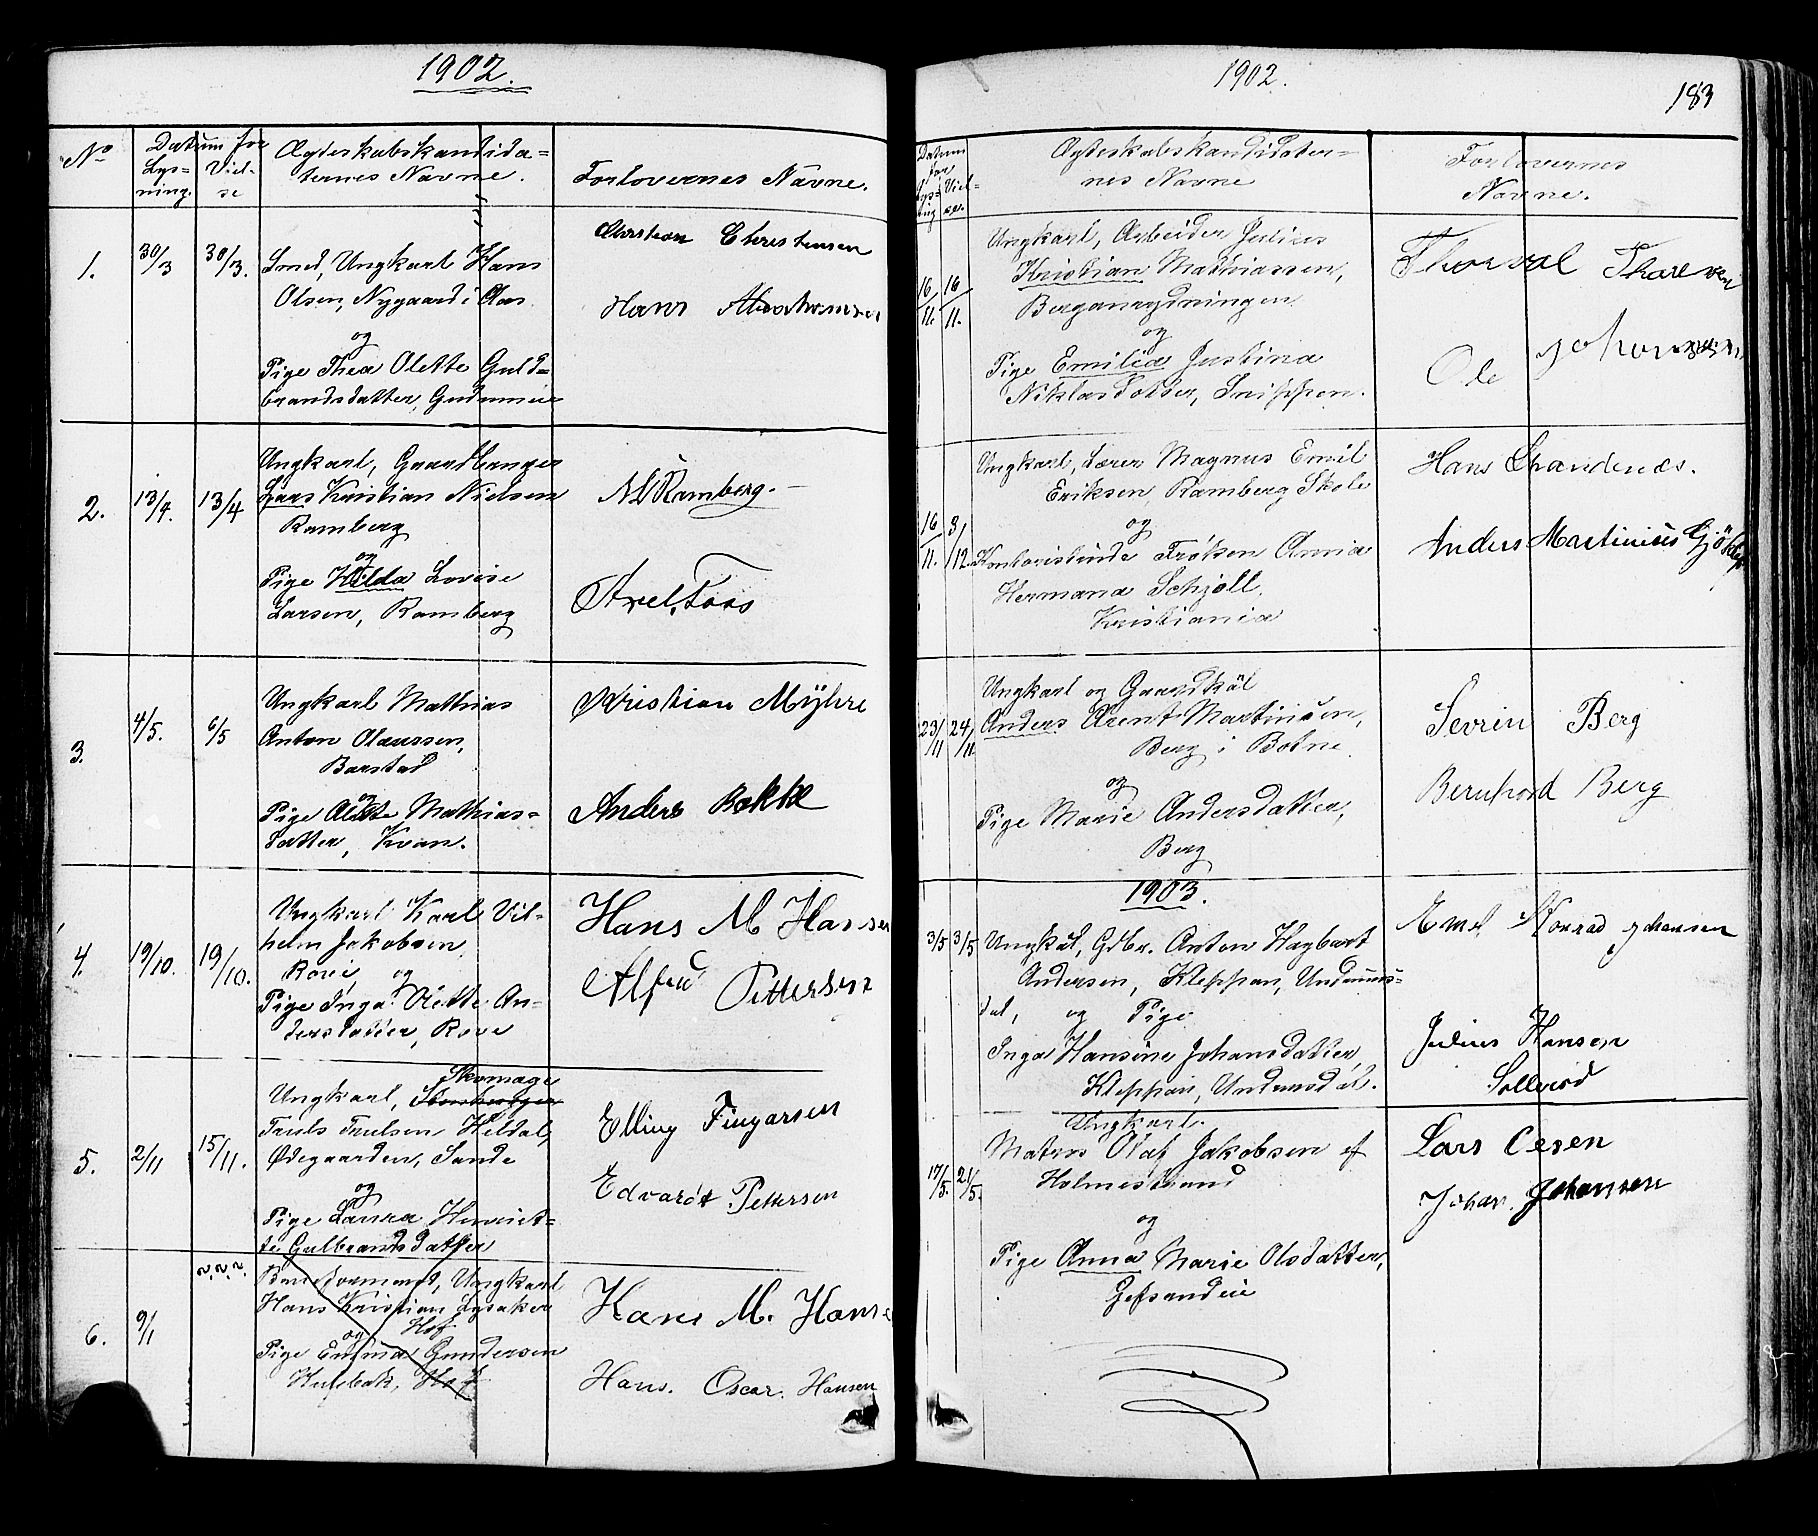 1902.
No
Datum for
Lys-
ning.
Viel-
se
Ægteskabskandida-
ternes Navne.
Forlovernes Navne.
1.
30/3
30/3.
Smed, Ungkarl Hans
Olsen, Nygaard i Aas
og
Pige Thea Olette Guld-
brandsdatter,
Christian Christensen
Hans Abrahamsen
2.
13/4.
13/4
Ungkarl, Gaardbruger
Lars Kristian Nielsen
Ramberg
og
Pige Hilda Lovise
Larsen, Ramberg
NL Ramberg.
Axel Foss
3.
4/5.
6/5
Ungkarl Mathias
Anton Olaussen,
Barstad
og
Pige Mathias-
datter, Kvan.
Kristian Myhre
Anders Bækkæ
4.
19/10.
19/10.
Ungkarl Karl Vil-
helm Jakobsen,
Rove, og
Pige Inga Olette An-
dersdatter, Rove
Hans M Hansen
Alfred Pettersen
5.
2/11
15/11.
Skomage
Ungkarl,
Truls Trulsen Heldal,
Ødegaarden, Sande
og
Pige Laura Henriet-
te Gulbrandsdatter
Elling Fingarsen
Edvardt Pettersen
6.
9/1
?.?.?.
Ungkarl
Hans Kristian Lysaker
og Hof
Pige Emma Gundersen
Hof
Hans M. Hanse
Hans. Oscar. Hansen
1902.
183
Datum
for
Lys-
ning
Viel-
se.
Ægteskabskandidater-
nes Navne
Forlovernes
Navne.
16/11.
16/11.
Ungkarl, Arbeider Julius
Kristian Mathiassen,
Berganrydningen
og
Pige Emilie Justina
Niklasdatter, Snippen.
Thorval Thorersen
Ole Johannesen
16/11.
3/12.
Ungkarl, Lærer Magnus Emil
Eriksen, Ramberg Skole
og
Kontoristinde Frøken Anna
Hermana Schjöll,
Kristiania
Hans
Anders Martinius
23/11
24/11
Ungkarl og Gaardkäl
Anders Arent Martinsen,
Berg i Botne.
og
Pige Marie Andersdatter,
Berg
Sevrin Berg
Bernhard Berg
1903.
3/5
3/5
Ungkäl, Gdbr. Anton Hagbart
Andersen, Kleppan, Undrums-
dal, og Pige
Inga Hansine Johansdatter,
Kleppan, Undrumsdal.
Emel Konrad Johansen
Julius Hansen
Solleröd
17/5.
21/5.
Ungkarl.
Matros Olaf Jakobsen af
Holmestrand
og
Pige Anna Marie Olsdatter,
Lars Oesen
Johan. Johansen